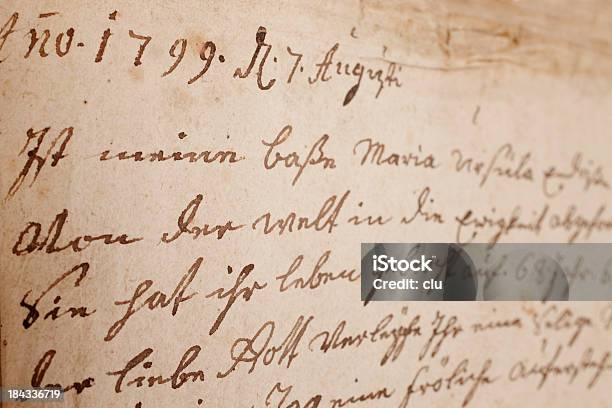 Año. 1799. D. 7. Augusti
Ist meine baße Maria Ursula
Von der welt in die Ewigkeit
Sie hat ihr leben auf. 68 Jahr
der liebe Gott Verleyhe Ihr eine Selige
eine fröliche Aufersteh
iStock
Credit: clu
184336719